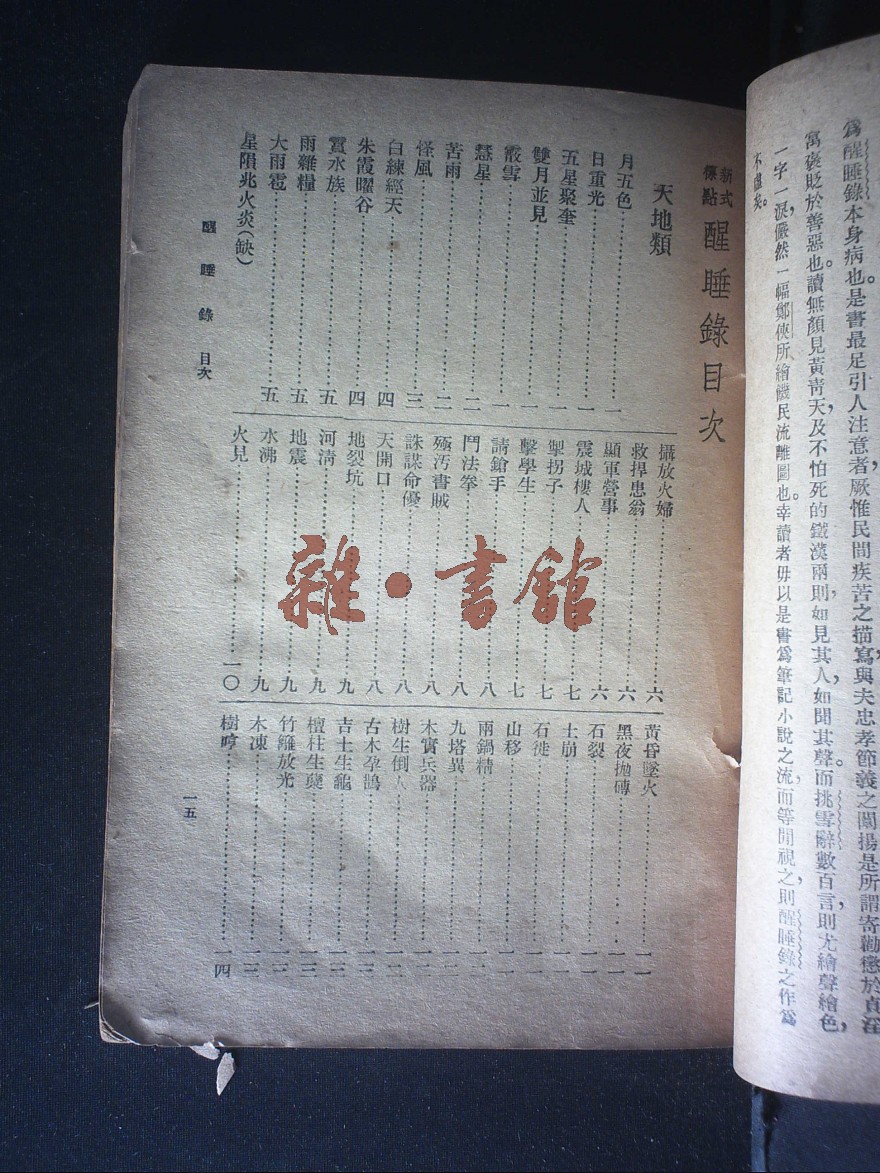 爲醒睡錄本身病也。是書最足引人注意者，厥惟民間疾苦之描寫，與夫忠孝節義之闡揚，是所謂寄勸懲於貞淫
寓褒貶於善惡也。讀無顏見黃靑天，及不怕死的鐵漢兩則，如見其人，如聞其聲。而挑雪辭數百言，則尤繪聲繪色，
一字一淚，儼然一幅鄭俠所繪饑民流離圖也。幸讀者毋以是書爲筆記小說之流，而等閒視之，則醒睡錄之作爲
不虛矣。
新式標點 醒睡錄目次
天地類
月五色 一
日重光 一
五星聚奎 一
雙月並見 一
霰雪 一
慧星 二
苦雨 二
怪風 三
白練經天 四
朱霞曜谷 四
霣水族 五
雨雜糧 五
大雨雹 五
星隕兆火炎（缺）
攝放火婦 六
救捍患翁 六
顯軍營事 六
震城樓人 七
掣拐子 七
擊學生 七
請鎗手 八
鬥法拳 八
殛汚書賊 八
誅謀命優 八
天開口 八
地裂坑 九
河淸 九
地震 九
水沸 九
火見 一〇
黃昏墜火 一一
黑夜拋磚 一一
石裂 一一
土崩 一一
石徙
山移
兩鍋精
九塔異
木實兵器
樹生倒人
古木孕鵲
吉土生龜
檀柱生輿
竹籬放光
木凍
樹哼 一四
醒睡錄 目次
一五
雜·書館